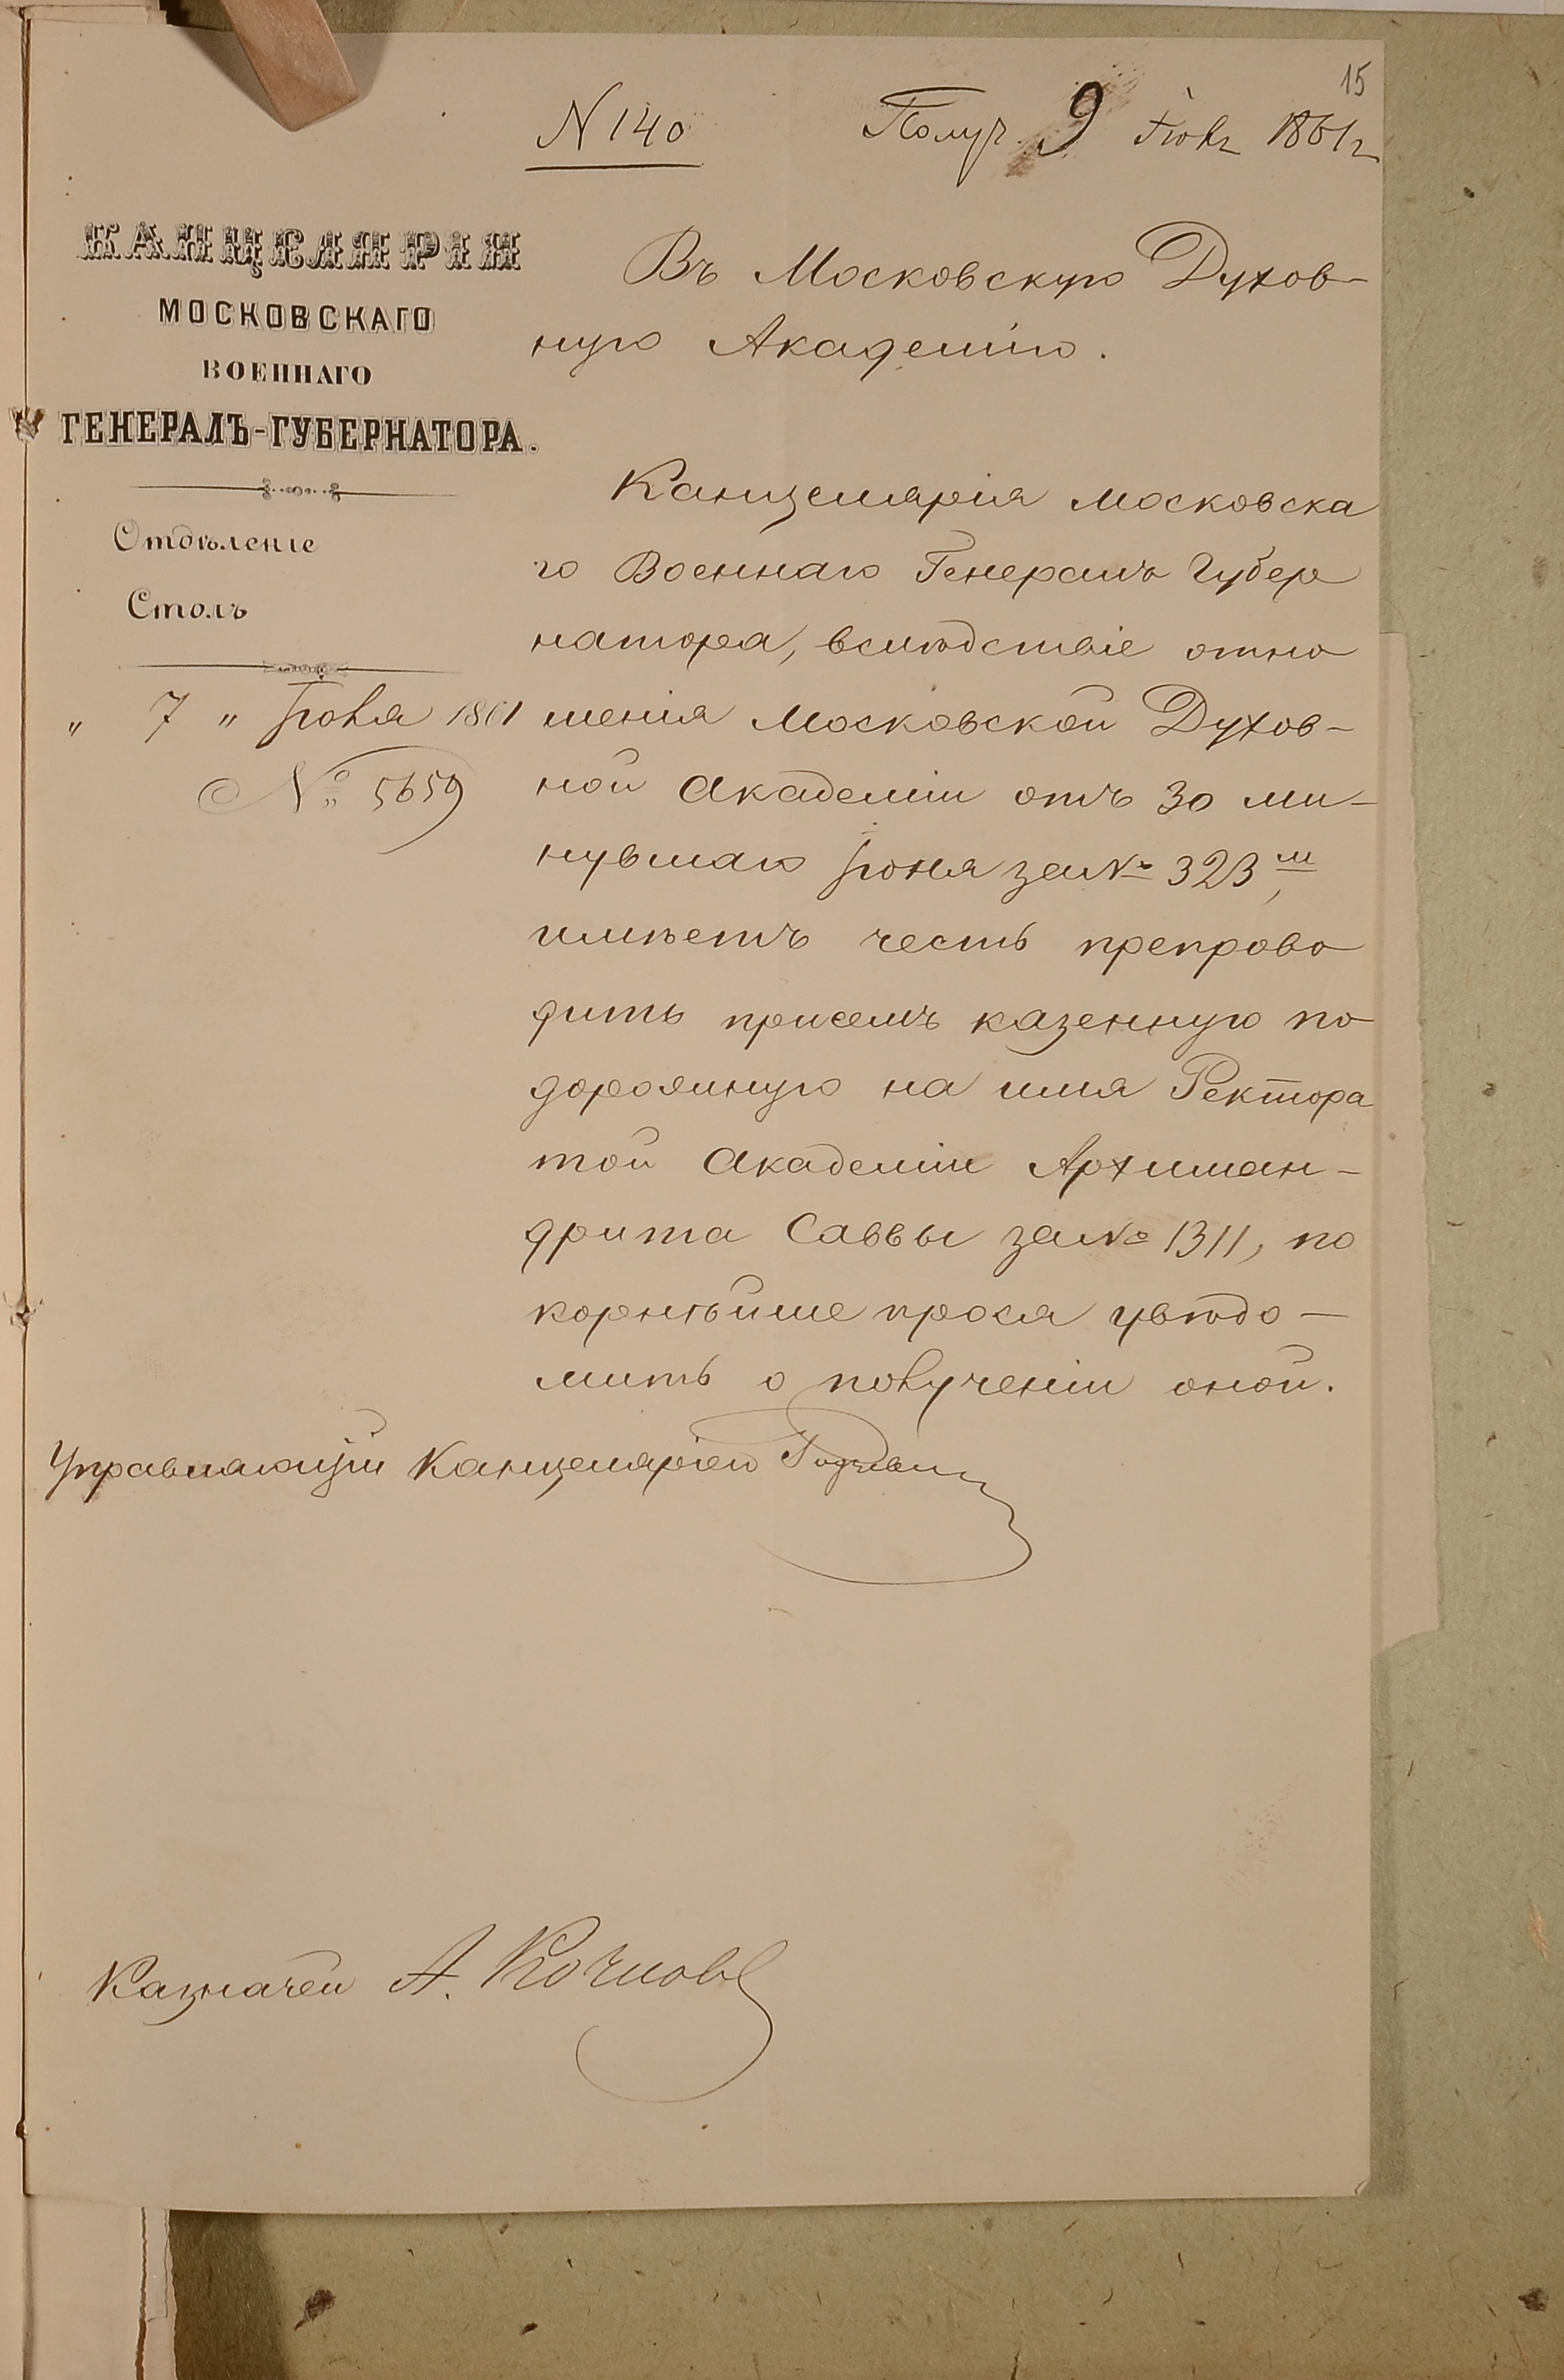 15
N 140
Получ. 9 Іюля 1861 г
КАНЦЕЛЯРІЯ
МОСКОВСКАГО
ВОЕННАГО
ГЕНЕРАЛЪ-ГУБЕРНАТОРА.
Отдѣленіе
Столъ
„ 7 „ Іюля 1861
№ 5659
Въ Московскую Духов-
ную Академію.
Канцелярія Московска
го Военнаго Генералъ Губер
натора, вслѣдствіе отно
шенія Московской Духов-
ной Академіи отъ 30 ми-
нувшаго Іюня за № 323 м,
имѣетъ честь препрово
дить присемъ казенную по
дорожную на имя Ректора
той Академіи Архиман-
дрита Саввы за № 1311, по
корнѣйше прося увѣдо-
мить о полученіи оной.
Управляющій Канцеляріею
Казначей А.